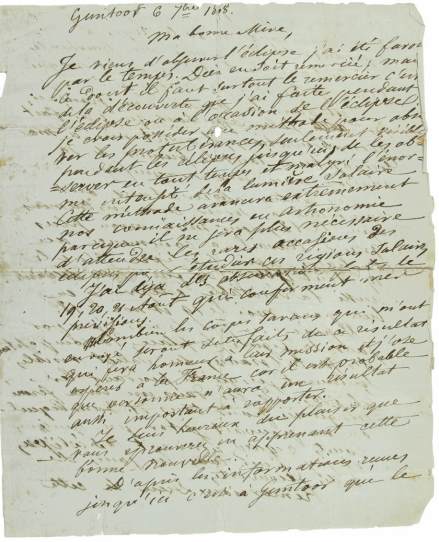 Guntoor 6 7bre 1868.
Ma bonne Mère,
Je viens d'observer l'éclipse j'ai été favori
par le temps. Dieu en soit remercié; mais
ce dont il faut surtout le remercier c'est
de la découverte que j'ai faite pendant
l'éclipse ou à l'occasion de l'éclipse
je possèder une méthode pour obser
ver les protubérances, seulement visibles
pendant les éclipses jusqu'ici, de les ob-
=server en tout temps et malgré l'énor-
me intensité de la lumière solaire
Cette méthode avancera extrêmement
nos connaissances en astronomie
parce qu'il ne sera plus nécessaire
d'attendre les rares occasions des
éclipses pr étudier ces régions solaires
J'ai déjà des observations le
19, 20, 21 Aout qui confirment mes
prévisions.
Combien les corps savans qui m'ont
envoyé seront satisfaits de ce résultat
qui fera honneur à leur mission et j'ose
espérer à la France car il est probable
que personne n'aura un résultat
aussi important à rapporter.
Je suis heureux du plaisir que
vous éprouverez en apprenant cette
bonne nouvelle.
D'après les informations reçues
jusqu'ici c'est à Guntoor que le